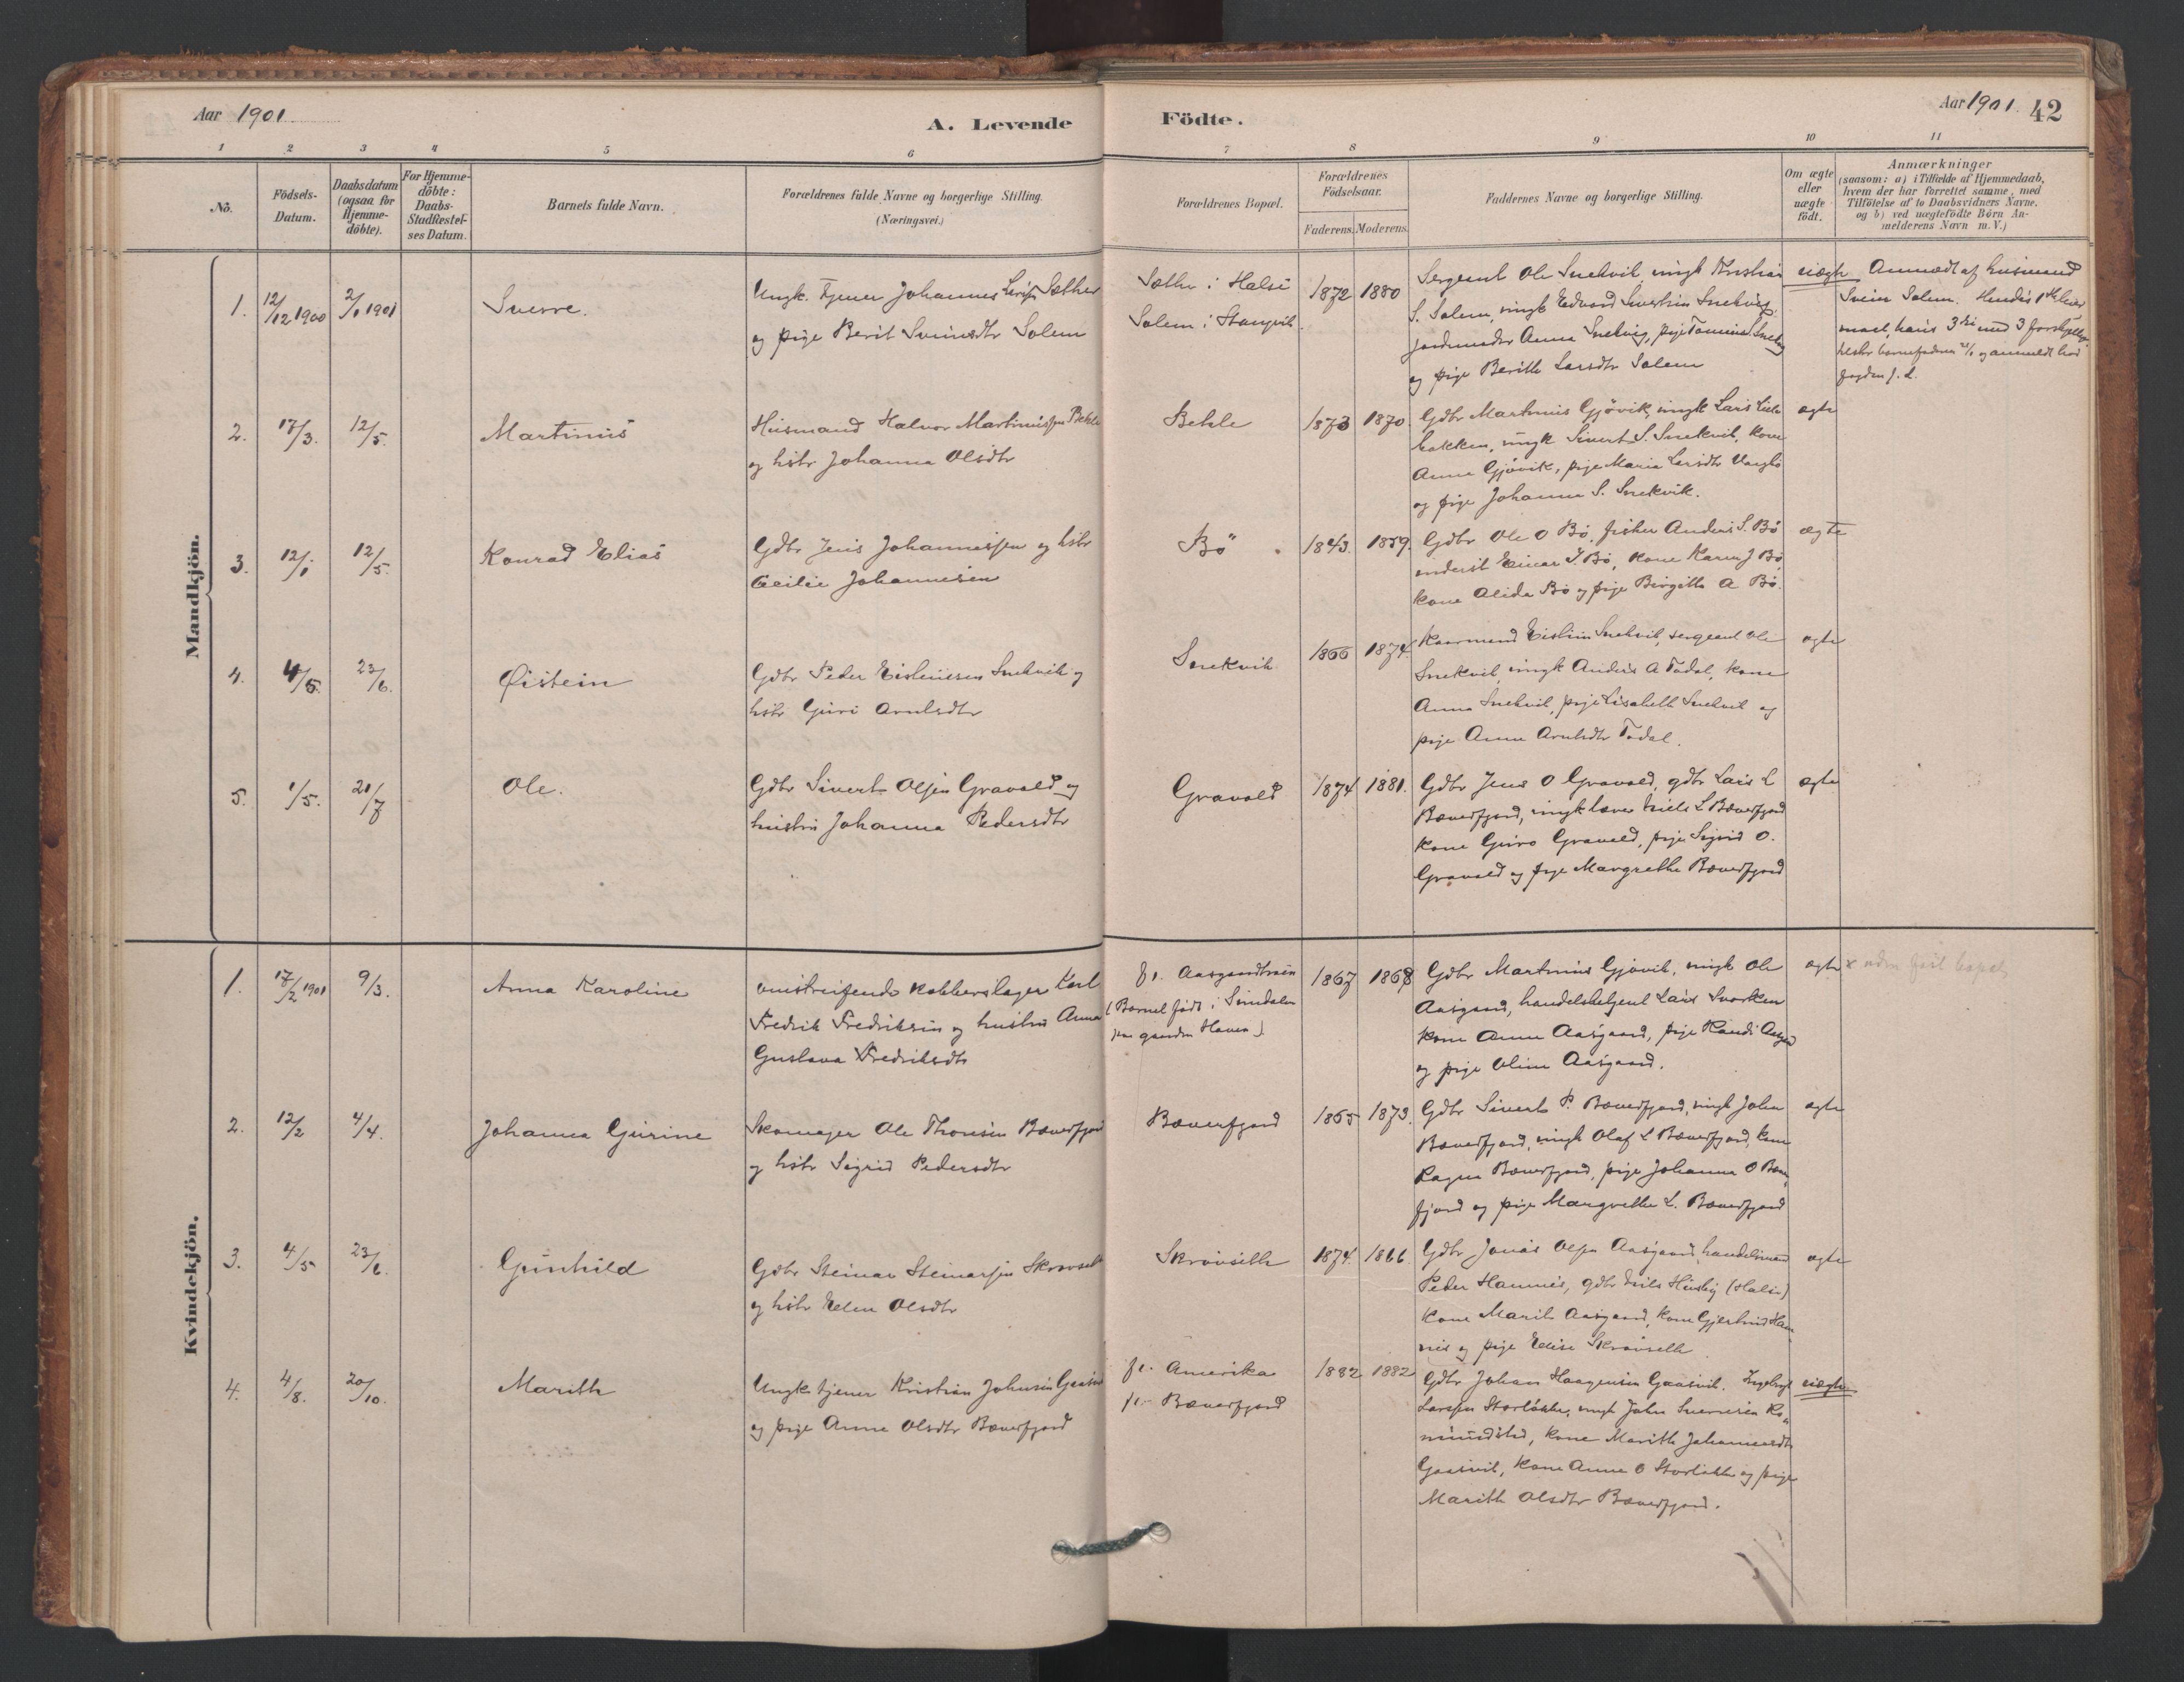 Aar 1901
A. Levende
1 2 3 4 5 6
No.
Födsels-
Datum.
Daabsdatum
(ogsaa for
Hjemme-
döbte).
For Hjemme-
döbte:
Daabs-
Stadfæstel-
ses Datum.
Barnets fulde Navn.
Forældrenes fulde Navne og borgerlige Stilling.
(Næringsvei.)
Mandkjön.
1. 12/12 1900 2/1 1901 Sverre.
Ungk. Tjener Johannes Larsen Sæther
og pige Berit Sveinsdtr Solem
2. 17/3. 12/5. Martinus
Husmand Halvor Martinussen Behle
og hstr Johanna Olsdtr
3. 12/1 12/5. Konrad Elias
Gdbr Jens Johannessen og hstr
Cecilie Johannesen
4. 4/5. 23/6. Øistein
Gdbr Peder Eisteinsen Snekvik og
hstr Guri Arntsdtr
5. 1/5. 21/7 Ole.
Gdbr Sivert Olsen Gravold og
hustru Johanna Pedersdtr
Kvindekjön.
1. 17/2 1901 9/3. Anna Karoline
omstreifende kobberslager Karl
Fredrik Fredriksen og hustru Anna
Gustava Fredriksdtr
2. 12/2 4/4. Johanna Gurine
Skomager Ole Thomsen Bæverfjord
og hstr Sigrid Pedersdtr
3. 4/5 23/6. Gunhild
Gdbr Steinar Steinarsen Skrovseth
og hstr Elen Olsdtr
4. 4/8. 20/10. Marith
Ungk tjener Kristian Johnsen Gaasvik
og pige Anne Olsdtr Bæverfjord
Aar 1901. 42
Födte.
7 8 9 10 11
Forældrenes Bopæl.
Forældrenes
Födselsaar.
Faderens. Moderens.
Faddernes Navne og borgerlige Stilling.
Om ægte
eller
uægte
födt.
Anmærkninger
(saasom: a) i Tilfælde af Hjemmedaab,
hvem der har forrettet samme, med
Tilföielse af to Daabsvidners Navne,
og b) ved uægtefödte Børn An-
melderens Navn m. V.)
Sæther i Halse
Solem i Stangvik.
1872 1880
Sergeant Ole Snekvik, ungk Kristian
S. Solem, ungk Edvard Sivertsen Snekvig,
jordmoder Anna Snekvig, pige
og pige Berith Larsdtr Solem
uægte
Anmeldt af husmand
Svein Solem. Hendes 1ste leier
maal, hans 3die med 3 forskjellige
Behle 1873 1870.
Gdbr Martinus Gjøvik, ungk Lars
bakken, ungk Sivert S. Snekvik, kone
Anne Gjøvik, pige Marie Larsdtr
og pige Johanna S. Snekvik.
ægte
Bö 1843. 1859.
Gdbr Ole O Bö, fisker Anders S. Bö
underst Einar J. Bö, kone Karen J Bö,
kone Alida Bö og pige Birgitte A Bö.
ægte
Snekvik 1866 1874.
Kaarmand Eistein Snekvik, sergeant Ole
Snekvik, ungk Anders A Todal, kone
Anna Snekvik, pige Lisabeth Snekvik og
pige Anne Arntsdtr Todal.
ægte
Gravold 1874 1881.
Gdbr Jens O Gravold, gdbr Lars L
Bæverfjord, ungk Niels L Bæverfjord
kone Guro Gravold, pige Sigrid O.
Gravold og pige Margrethe Bæverfjord
ægte
f. 1. Aasgaardtrøen
(Barnet født i Surndalen
paa gaarden Haven)
1867 1868
Gdbr Martinus Gjøvik, ungk Ole
Aasgaard, handelsbetjent Lars Svorken
kone Anne Aasgaard, pige Randi Aasgaard
og pige Oline Aasgaard.
ægte
x uden fast bopæl
Bæverfjord 1865 1873.
Gdbr Sivert P. Bæverfjord, ungk John
Bæverfjord, ungk Olaf L Bæverfjord, kone
Ragna Bæverfjord, pige Johanna O Bæver
fjord og pige Margrethe L. Bæverfjord
ægte
Skrovseth 1874. 1866.
Gdbr Jonas Olsen Aasgaard, handelsmand
Peder Hamnes, gdbr Nils Husby (Halse)
kone Marit Aasgaard, kone Gjertrud Ham
nes og pige Elise Skrovseth.
ægte
f. Amerika
f. Bæverfjord
1882 1882
Gdbr Johan Haagensen Gaasvik. Ingebrigt
Larsen Storløkke, ungk John Sverresen Ro
mundstad, kone Marith Johannesdtr
Gaasvik, kone Anne O Storløkke og pige
Marith Olsdtr Bæverfjord.
uægte